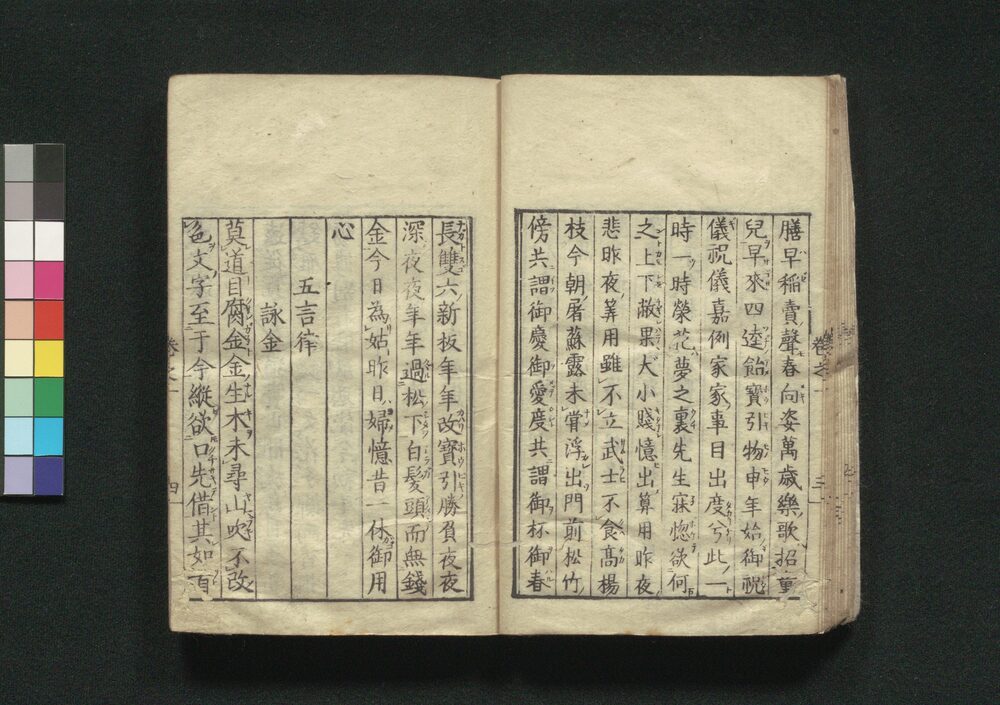 膳早稲賣聲春向姿萬歳樂歌招童
兒早來四逵飴寶引物申年始御祝
儀祝儀嘉例家家事目出度兮此一
時一時榮花夢之裏先生寐惚欲何
之上下敝果大小賤憶出算用昨夜
悲昨夜筭用雖不立武士不食高楊
枝今朝屠蘇露未甞浮出門前松竹
傍共謂御慶御愛度共謂御杯御春
卷之一
三
長雙六新板年年改寶引勝負夜夜
深夜夜年年過松下白髮頭而無錢
金今日為姑昨日婦憶昔一休御用
心
五言律
詠金
莫道目腐金金生木未尋山吹不改
色文字至于今縱欲口先借其如百
卷之一
四